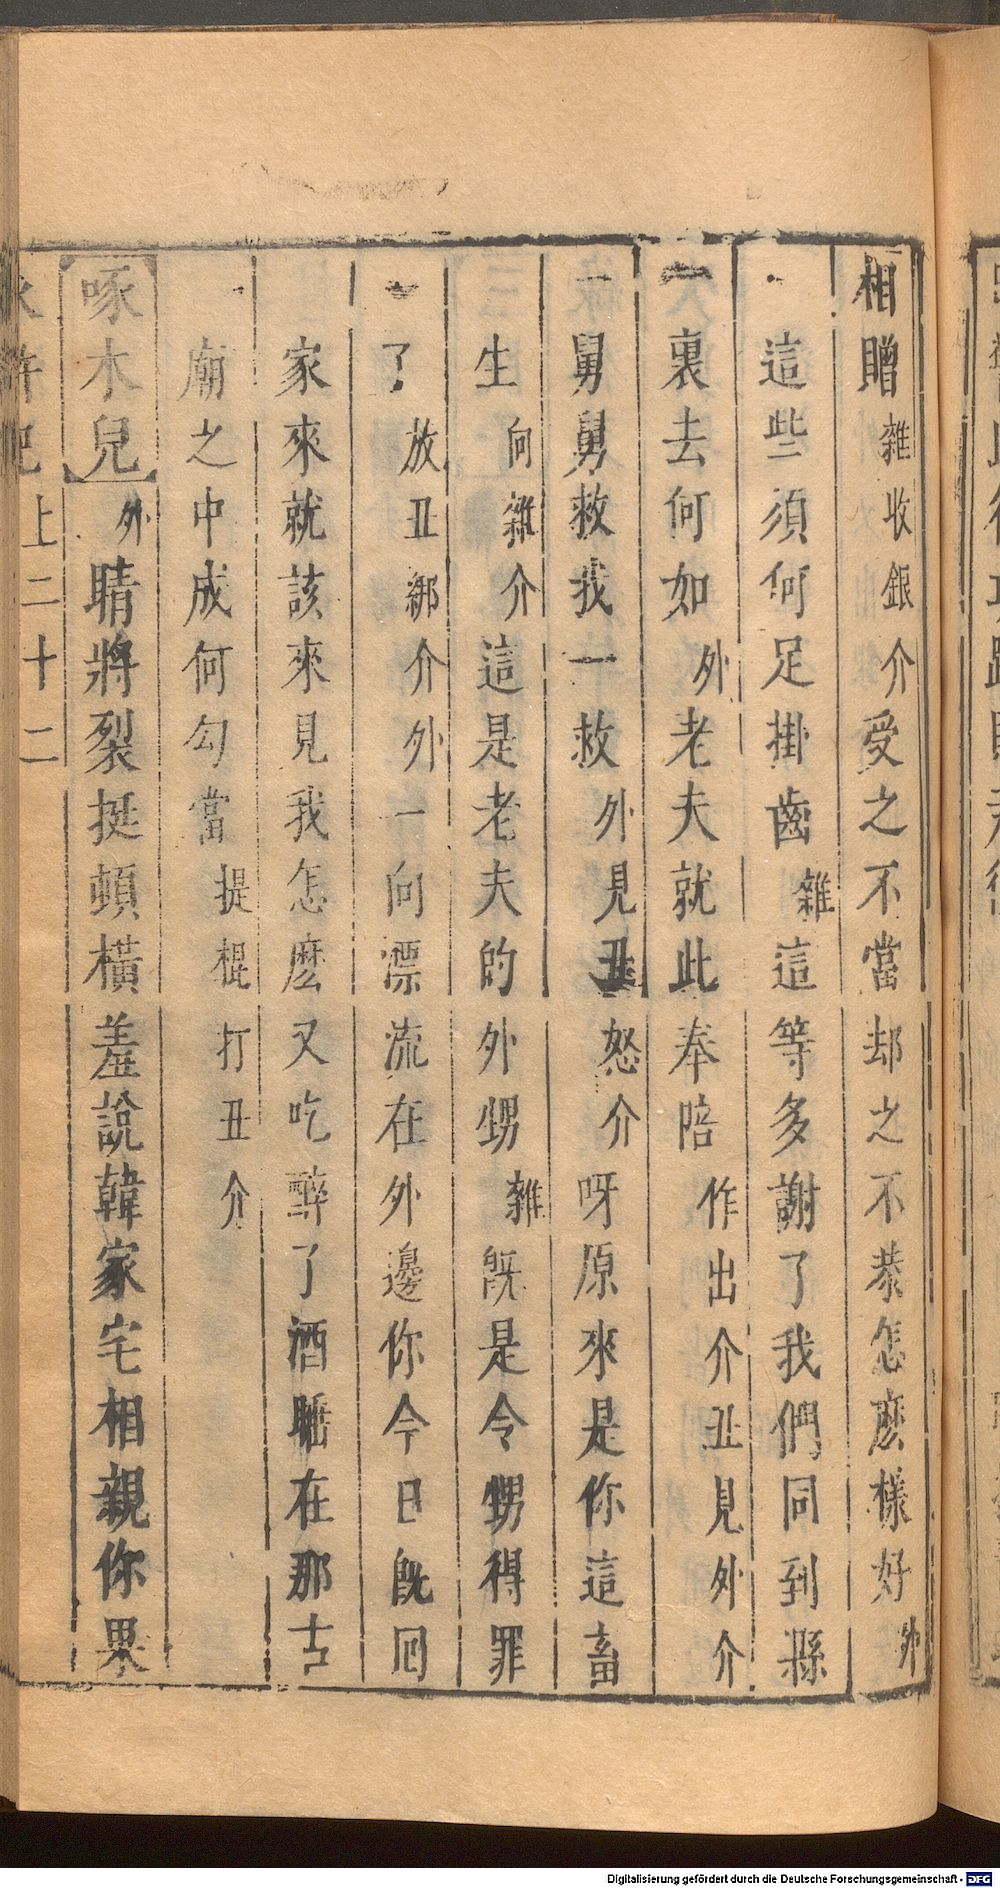 相贈雜收銀介受之不當却之不恭怎麽樣好外
這些須何足掛齒雜這等多謝了我們同到縣
裏去何如外老夫就此奉陪作出介丑見外介
舅舅救我一救外見丑怒介呀原來是你這畜
生向雜介這是老夫的外甥雜既是令甥得罪
了放丑綁介外一向漂流在外邊你今日既囘
家來就該來見我怎麽又吃醉了酒睡在那古
廟之中成何勾當提棍打丑介
啄木兒外睛將裂挺頓橫羞說韓家宅相親你果
水滸記上二十二
Digitalisierung gefördert durch die Deutsche Forschungsgemeinschaft - DFG